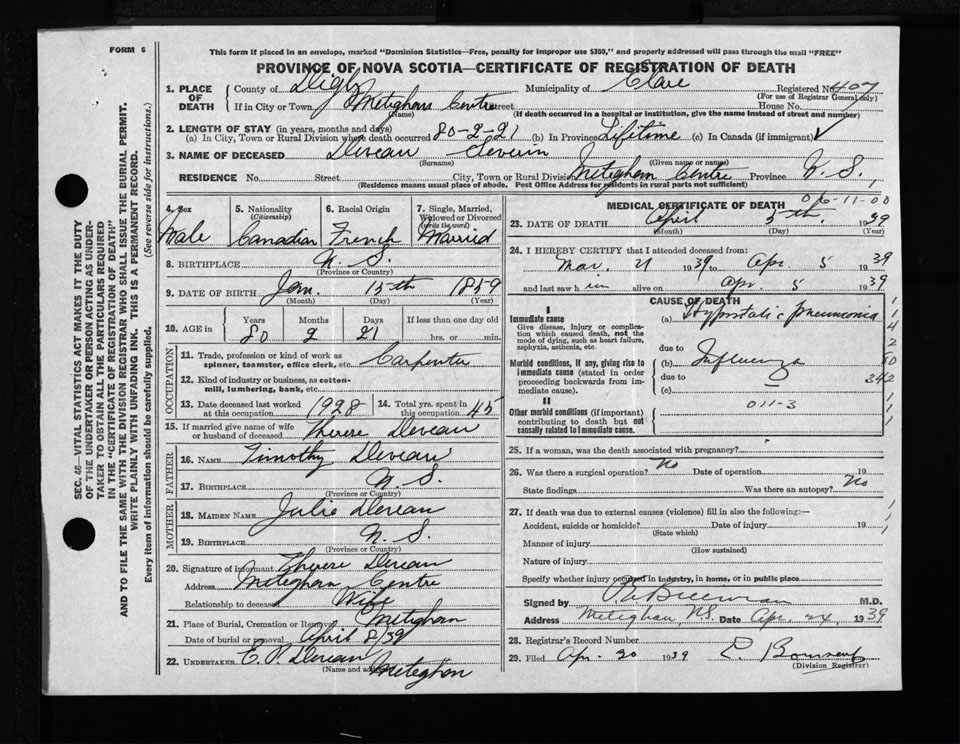 FORM 6
This form if placed in an envelope, marked "Dominion Statistics—Free, penalty for improper use $300," and properly addressed will pass through the mail "FREE"
PROVINCE OF NOVA SCOTIA—CERTIFICATE OF REGISTRATION OF DEATH
1. PLACE OF DEATH
County of Digby Municipality of Clare Registered No. 407
(For use of Registrar General only)
If in City or Town Meteghan Centre street House No.
(Name) (If death occurred in a hospital or institution, give the name instead of street and number)
2. LENGTH OF STAY (in years, months and days)
(a) In City, Town or Rural Division where death occurred 80-2-21 (b) In Province Lifetime (c) In Canada (if immigrant) ✓
3. NAME OF DECEASED Deveau Severin
(Surname) (Given name or names)
RESIDENCE No. Street City, Town or Rural Division Meteghan Centre Province N.S.
(Residence means usual place of abode. Post Office Address for residents in rural parts not sufficient)
4. Sex
Male
5. Nationality
(Citizenship)
Canadian
6. Racial Origin
French
7. Single, Married, Widowed or Divorced
(write the word)
Married
8. BIRTHPLACE N. S.
(Province or Country)
9. DATE OF BIRTH Jan. 15th 1859
(Month) (Day) (Year)
10. AGE in
Years Months Days If less than one day old
80 2 21 hrs. or min.
OCCUPATION
11. Trade, profession or kind of work as spinner, teamster, office clerk, etc. Carpenter
12. Kind of industry or business, as cotton-mill, lumbering, bank, etc.
13. Date deceased last worked at this occupation 1928
14. Total yrs. spent in this occupation 45
15. If married give name of wife or husband of deceased Therese Deveau
FATHER
16. NAME Timothy Deveau
17. BIRTHPLACE N. S.
(Province or Country)
MOTHER
18. MAIDEN NAME Julie Deveau
19. BIRTHPLACE N. S.
(Province or Country)
20. Signature of informant Therese Deveau
Address Meteghan Centre
Relationship to deceased Wife
21. Place of Burial, Cremation or Removal Meteghan
Date of burial or removal April 8/39
22. UNDERTAKER E. P. Deveau
(Name and address) Meteghan
MEDICAL CERTIFICATE OF DEATH
23. DATE OF DEATH April 5th, 1939
(Month) (Day) (Year)
24. I HEREBY CERTIFY that I attended deceased from:
Mar. 21 1939 to Apr. 5 1939
and last saw him alive on Apr. 5 1939
CAUSE OF DEATH
I
Immediate cause
Give disease, injury or complication which caused death, not the mode of dying, such as heart failure, asphyxia, asthenia, etc.
(a) Hypostatic pneumonia
due to
Morbid conditions, if any, giving rise to immediate cause (stated in order proceeding backwards from immediate cause).
(b) Influenza
due to
(c)
342
II
Other morbid conditions (if important) contributing to death but not causally related to immediate cause.
011-3
25. If a woman, was the death associated with pregnancy?
26. Was there a surgical operation? No Date of operation 19
State findings Was there an autopsy? No
27. If death was due to external causes (violence) fill in also the following:—
Accident, suicide or homicide? Date of injury 19
(State which)
Manner of injury
(How sustained)
Nature of injury
Specify whether injury occurred in industry, in home, or in public place
Signed by M.D.
Address Meteghan, N.S. Date Apr. 24, 1939
28. Registrar's Record Number
29. Filed Apr. 20 1939
(Division Registrar)
SEC. 46—VITAL STATISTICS ACT MAKES IT THE DUTY
OF THE UNDERTAKER OR PERSON ACTING AS UNDER-
TAKER TO OBTAIN ALL THE PARTICULARS REQUIRED
IN THE "CERTIFICATE OF REGISTRATION OF DEATH"
AND TO FILE THE SAME WITH THE DIVISION REGISTRAR WHO SHALL ISSUE THE BURIAL PERMIT.
WRITE PLAINLY WITH UNFADING INK. THIS IS A PERMANENT RECORD.
Every item of information should be carefully supplied. (See reverse side for instructions.)